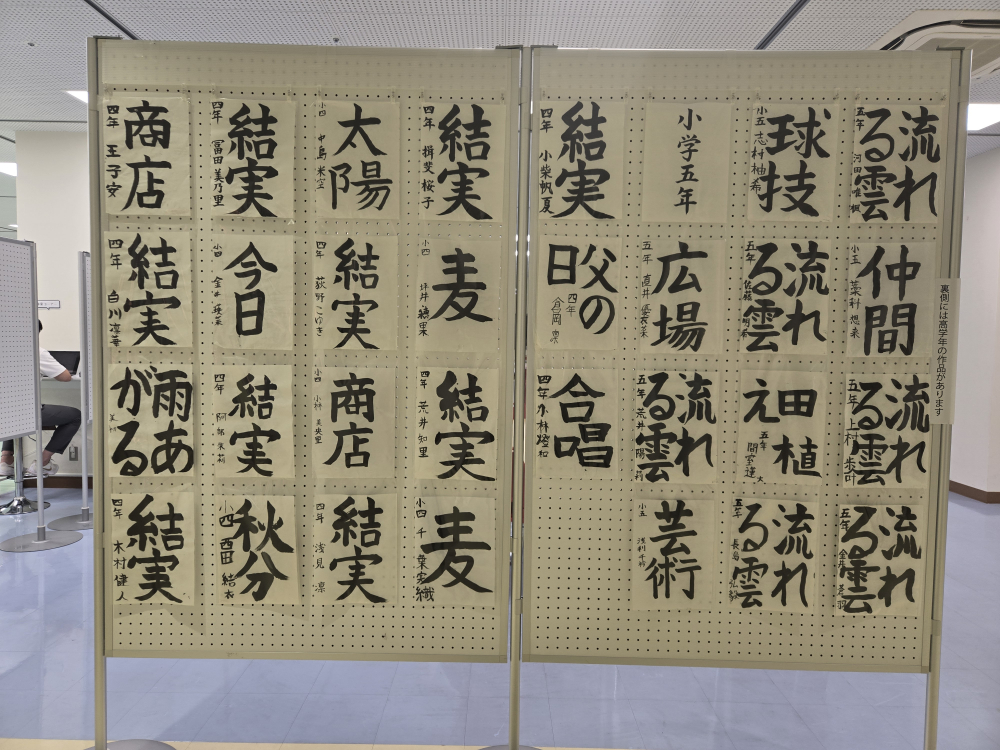 裏側には高学年の作品があります
流れ
る雲
五年
仲間
流れ
る雲
五年 上村
流れ
る雲
五年
球技
小五 志村柚希
流れ
る雲
五年 佐藤
田植
え
五年 間室蓮大
流れ
る雲
五年 長島
小学五年
広場
五年
流れ
る雲
五年 荒井陽
芸術
小五
結実
四年 小柴帆夏
父の
日
四年
合唱
四年 小林
結実
四年 揖斐桜子
麦
小四 坪井
結実
四年 荒井知里
麦
小四 千葉
太陽
小四 中島
結実
四年 荻野こつき
商店
小四 小林美央里
結実
四年 浅見凛
結実
四年 冨田美乃里
今日
小四
結実
四年 阿部茉莉
秋分
小四 西田結衣
商店
四年 王子安
結実
四年 白川凉華
雨あ
がる
結実
四年 木村健人